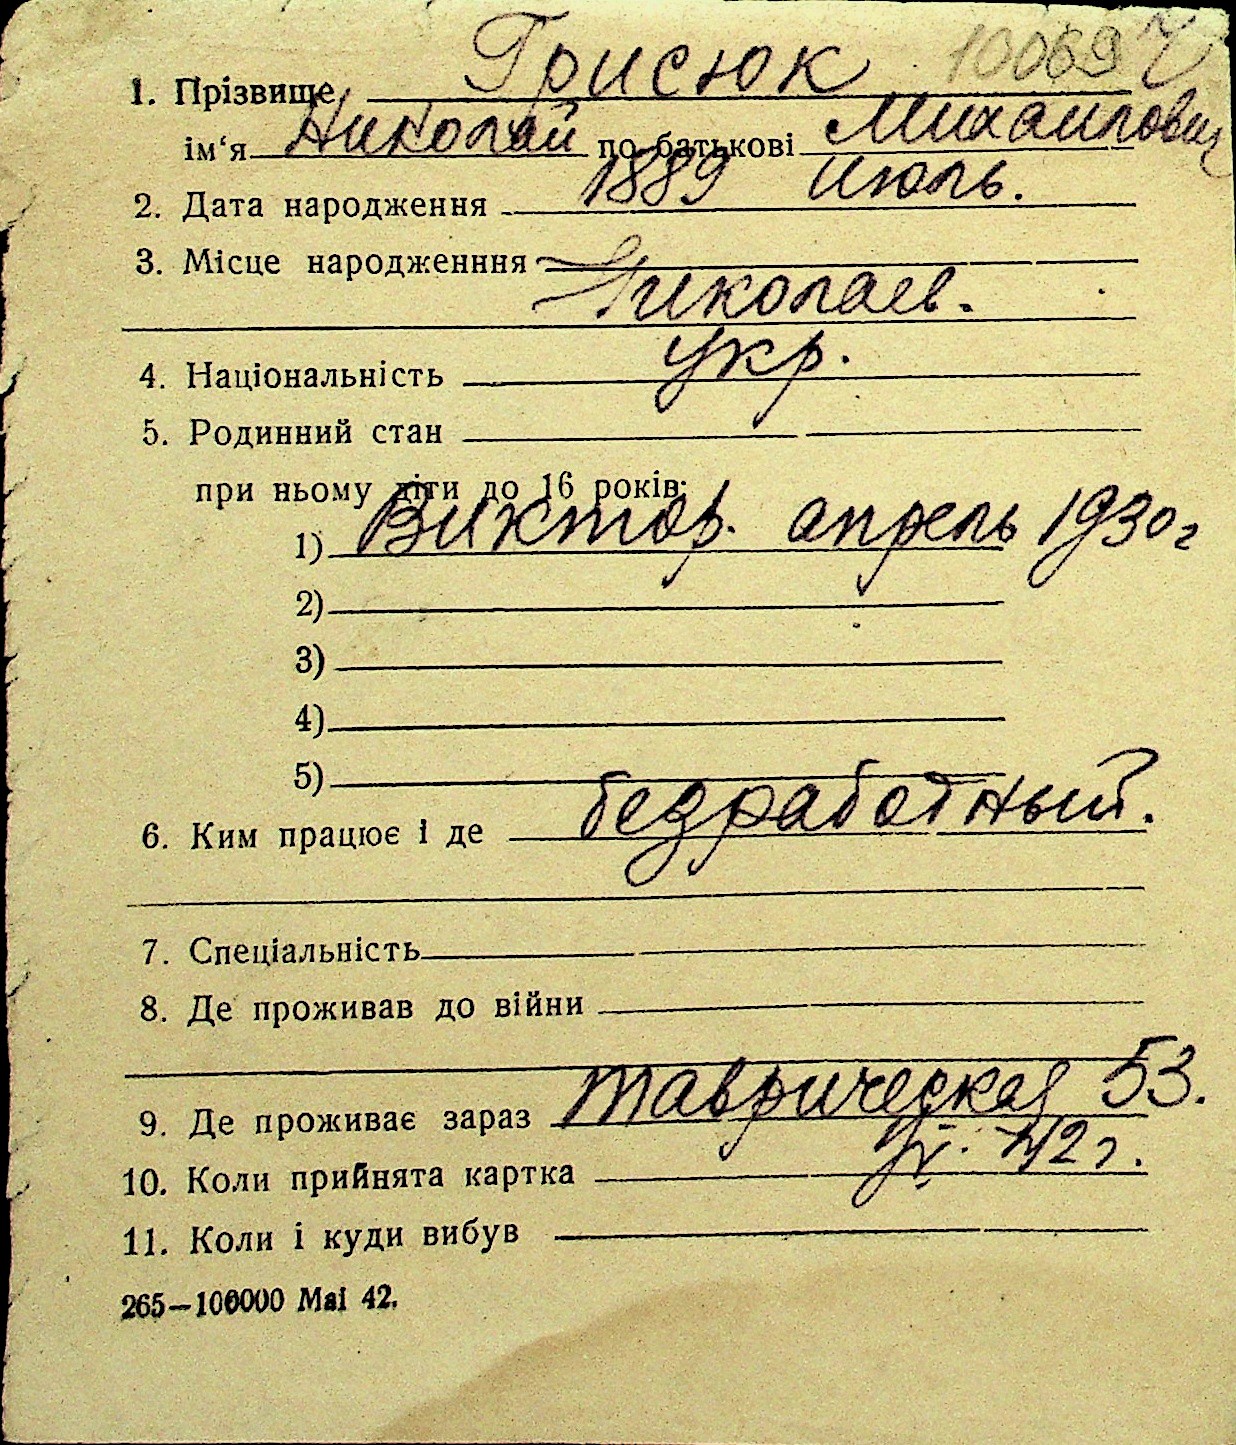 10069
1. Прізвище Грисюк
ім‘я Николай по батькові Михаилович
2. Дата народження 1889 июль.
3. Місце народженння
Николаев.
4. Національність укр.
5. Родинний стан
при ньому діти до 16 років:
1) Виктор. апрель 1930 г
2)
3)
4)
5)
6. Ким працює і де безработный.
7. Спеціальність
8. Де проживав до війни
9. Де проживає зараз Таврическая 53.
10. Коли прийнята картка 42 г.
11. Коли і куди вибув
265—100000 Mai 42.